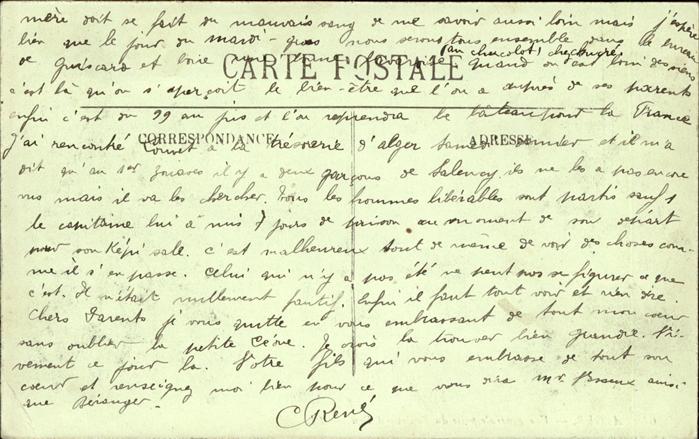 mère doit se fait du mauvais sang de me savoir aussi loin mais j'espère
bien que le jour du mardi-gras nous serons tous ensemble dans le
de Guiscard et boire une au chocolat chez quand on est loin des siens
CARTE POSTALE
c'est là qu'on s'aperçoit le bien-être que l'on a auprès de ses parents
enfin c'est du 99 au jus et l'on reprendra le bâteau pour la France
CORRESPONDANCE
ADRESSE
J'ai rencontré à la trésorerie d'alger samedi dernier et il m'a
dit qu'au 1er zouaves il y a deux garçons de Salency, ils ne les a pas encore
vus mais il va les chercher. Tous les hommes libérables sont partis sauf 1
le capitaine lui a mis 7 jours de prison au moment de son départ
pour son Képi sale. c'est malheureux tout de même de voir des choses com-
me il s'en passe. Celui qui n'y a pas été ne peut pas se figurer ce que
c'est. Il n'était nullement fautif. Enfin il faut tout voir et rien dire.
Chers Parents je vous quitte en vous embrassant de tout mon cœur
sans oublier la petite Je crois la trouver bien grandie. Vi-
vement ce jour là. Votre fils qui vous embrasse de tout son
cœur et renseignez moi bien pour ce que vous dira Mr ainsi
que Béranger.
René